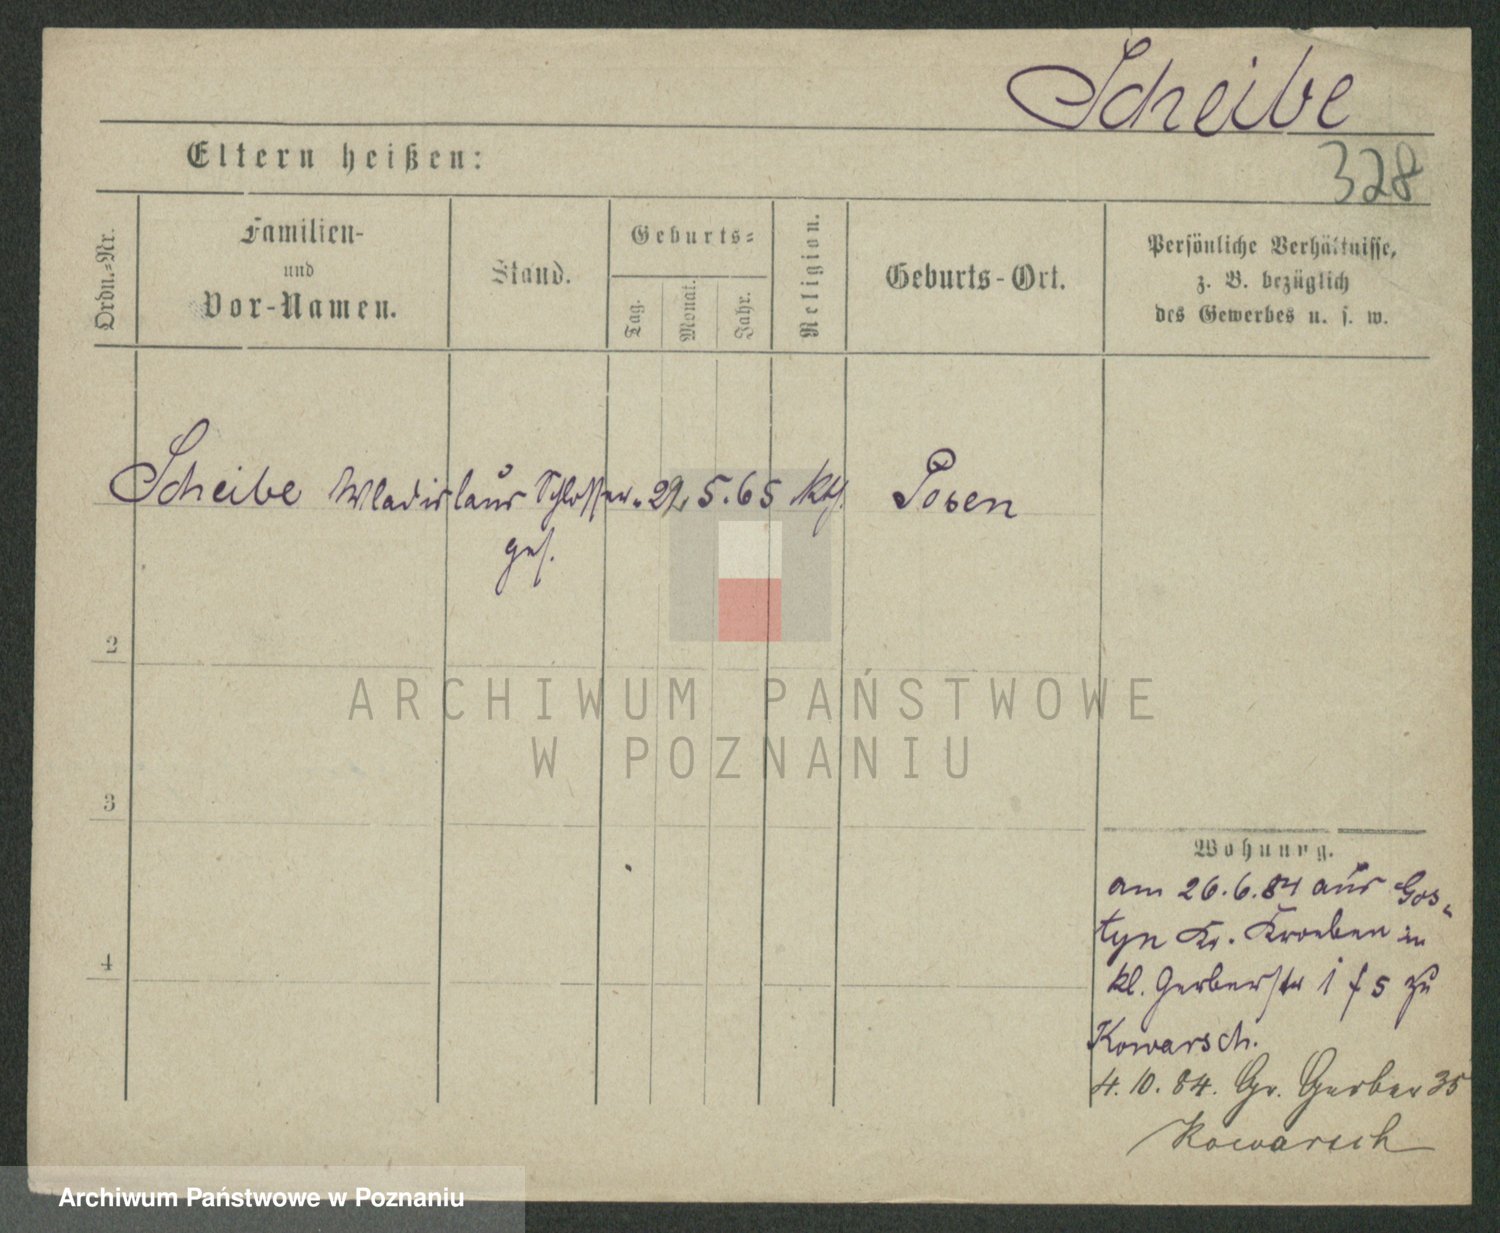 Scheibe
328
Eltern heißen:
Ordn.=Nr.
Familien-
und
Vor-Namen.
Stand.
Geburts=
Tag.
Monat.
Jahr.
Religion.
Geburts-Ort.
Persönliche Verhältnisse,
z. B. bezüglich
des Gewerbes u. s. w.
Scheibe Wladislaus Schlosser 29. 5. 65 kth. Posen
ges.
2
3
4
Wohnung.
am 26.6.84 aus Gos-
tyn Kr. Kroeben in
kl. Gerberstr 1 f 5 zu
Kowarsch.
4. 10. 84. Gr. Gerber 35
Kowarsch
ARCHIWUM PAŃSTWOWE
W POZNANIU
Archiwum Państwowe w Poznaniu